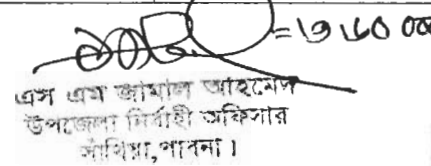 এস এম জামাল আহমেদ
উপজেলা নির্বাহী অফিসার
সাঁথিয়া, পাবনা।